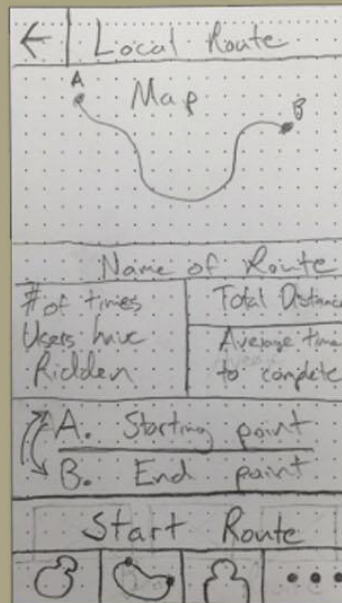 Local Route
A
Map
B
Name of Route
# of times
Users have
Ridden
Total Distanc
Average time
to complete
A. Starting point
B. End point
Start Route